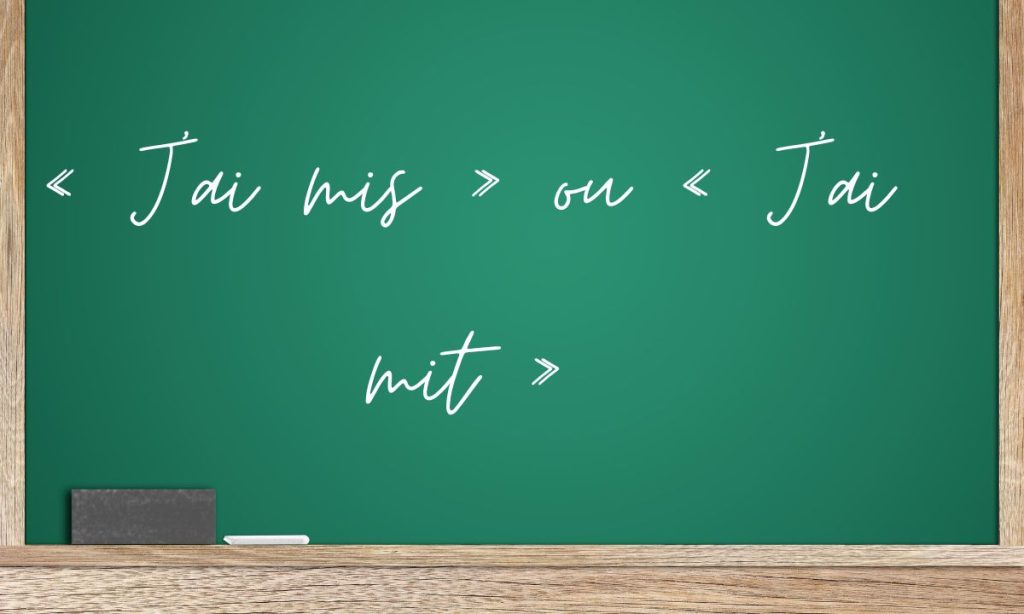 « J'ai mis » ou « J'ai
mit »